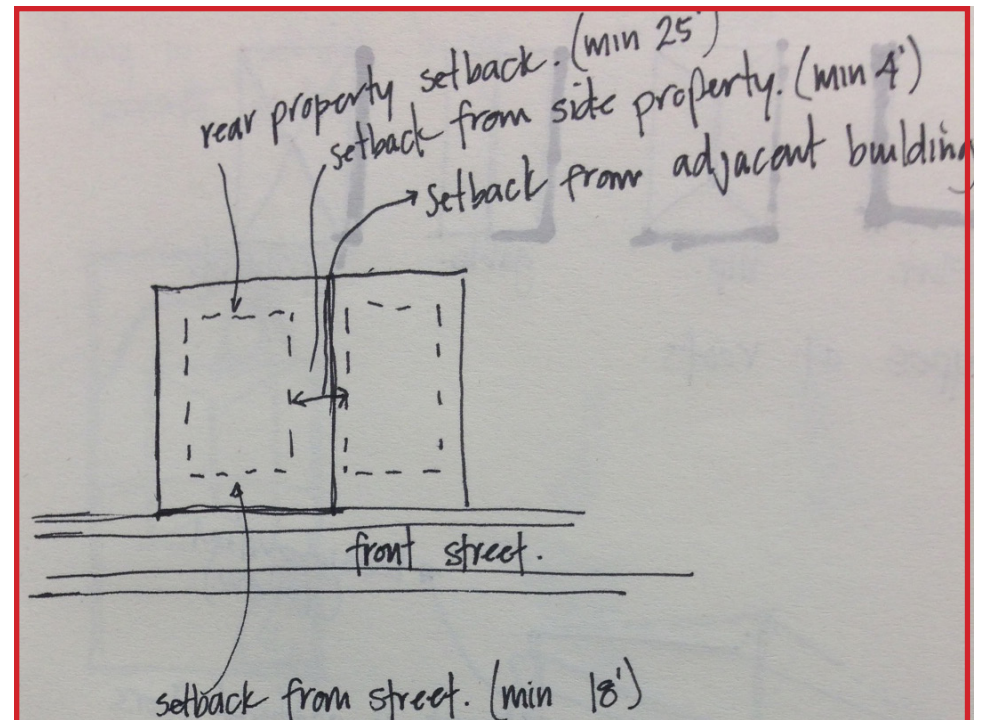 rear property setback. (min 25')
setback from side property. (min 4')
setback from adjacent building
front street.
setback from street. (min 18')